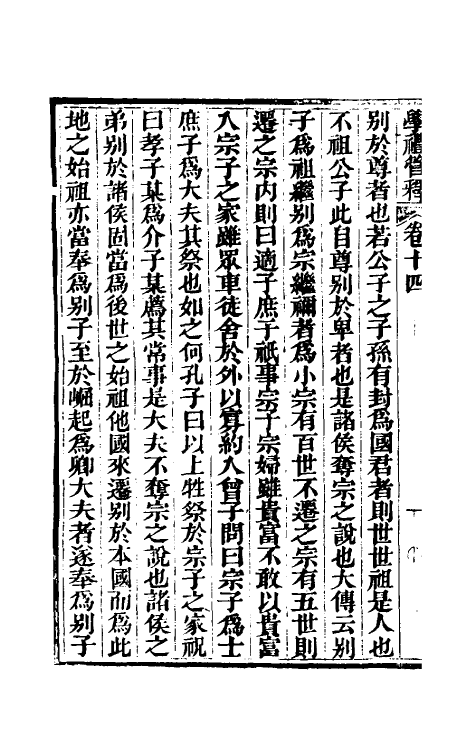 學禮管釋 卷十四
別於尊者也若公子之子孫有封爲國君者則世世祖是人也
不祖公子此自尊別於卑者也是諸侯奪宗之說也大傳云別
子爲祖繼別爲宗繼禰者爲小宗有百世不遷之宗有五世則
遷之宗內則曰適子庶子祇事宗子宗婦雖貴富不敢以貴富
入宗子之家雖眾車徒舍於外以寡約入曾子問曰宗子爲士
庶子爲大夫其祭也如之何孔子曰以上牲祭於宗子之家祝
曰孝子某爲介子某薦其常事是大夫不奪宗之說也諸侯之
弟別於諸侯固當爲後世之始祖他國來遷別於本國而爲此
地之始祖亦當奉爲別子至於崛起爲卿大夫者遂奉爲別子